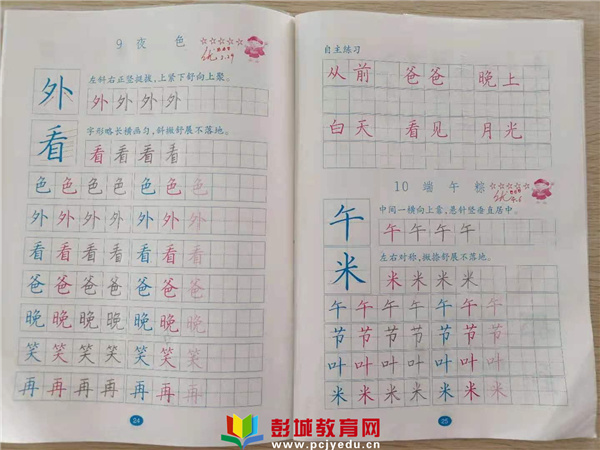 9 夜 色
优
外
左斜右正竖挺拔,上紧下舒向上聚。
外 外 外 外
看
字形略长横画匀,斜撇舒展不落地。
看 看 看 看
色 色 色 色 色 色 色
外 外 外 外 外 外 外
看 看 看 看 看 看 看
爸 爸 爸 爸 爸 爸 爸
晚 晚 晚 晚 晚 晚 晚
笑 笑 笑 笑 笑 笑 笑
再 再 再 再 再 再 再
24
自主练习
从前 爸爸 晚上
白天 看见 月光
10 端 午 粽
优
午
中间一横向上靠,悬针竖垂直居中。
午 午 午 午
米
左右对称,撇捺舒展不落地。
米 米 米 米
午 午 午 午 午 午 午
节 节 节 节 节 节 节
叶 叶 叶 叶 叶 叶 叶
米 米 米 米 米 米 米
25
彭城教育网
www.pcjyedu.cn